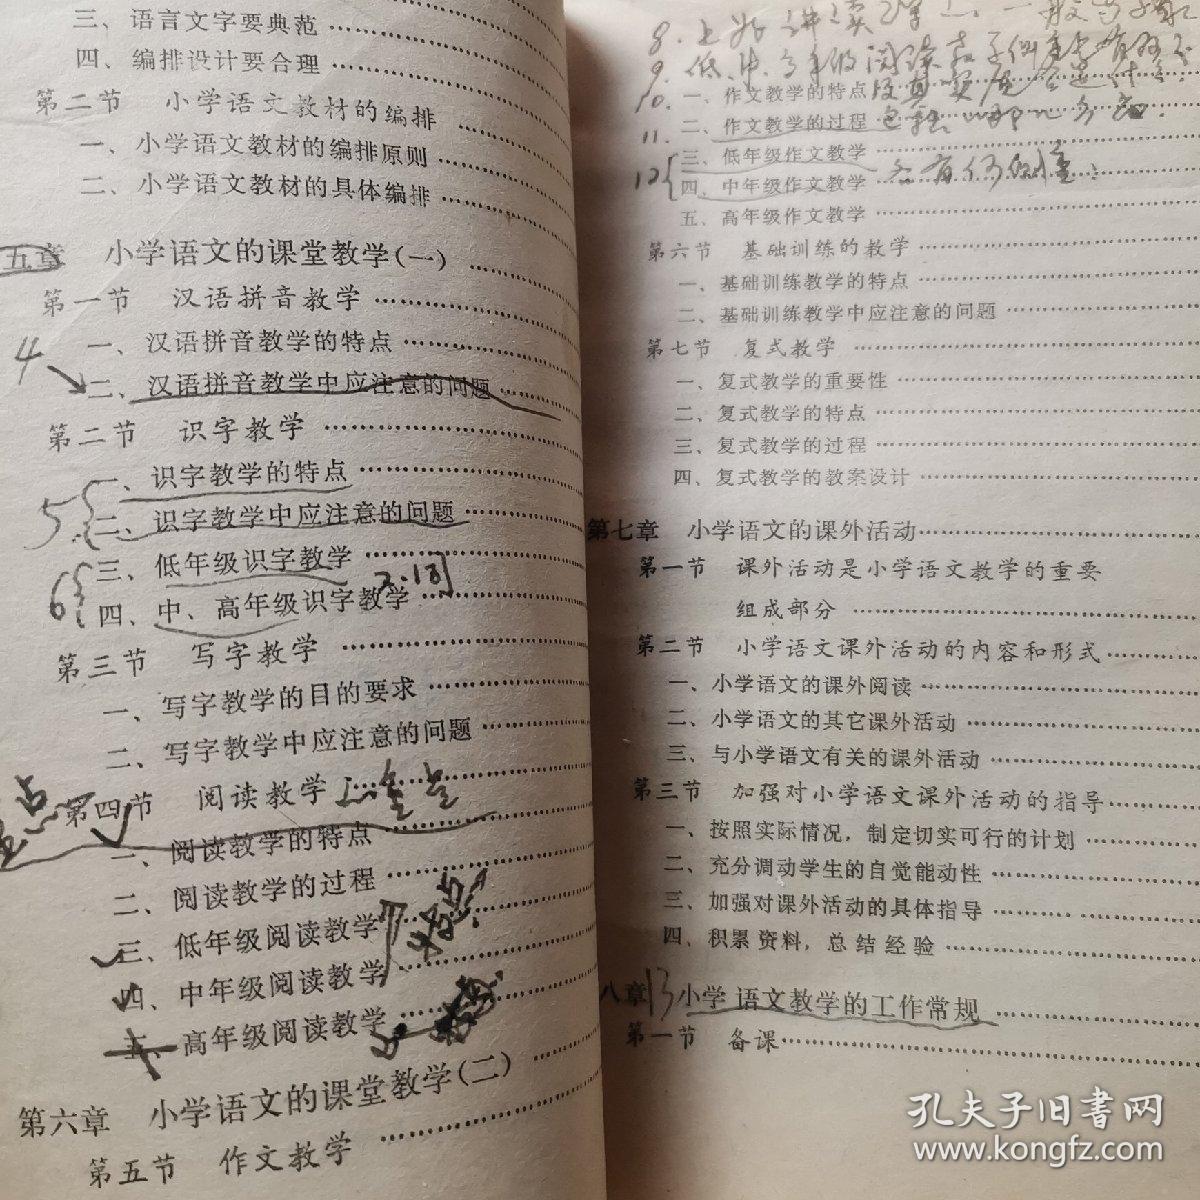 三、语言文字要典范
四、编排设计要合理
第二节 小学语文教材的编排
一、小学语文教材的编排原则
二、小学语文教材的具体编排
五章 小学语文的课堂教学(一)
第一节 汉语拼音教学
一、汉语拼音教学的特点
4
二、汉语拼音教学中应注意的问题
第二节 识字教学
一、识字教学的特点
5
二、识字教学中应注意的问题
三、低年级识字教学
6
四、中、高年级识字教学
第三节 写字教学
一、写字教学的目的要求
二、写字教学中应注意的问题
第四节 阅读教学
一、阅读教学的特点
二、阅读教学的过程
三、低年级阅读教学
四、中年级阅读教学
五、高年级阅读教学
第六章 小学语文的课堂教学(二)
第五节 作文教学
8.
9. 低.中.高年级阅读教学
10.
一、作文教学的特点
11.
二、作文教学的过程
三、低年级作文教学
12
四、中年级作文教学
五、高年级作文教学
第六节 基础训练的教学
一、基础训练教学的特点
二、基础训练教学中应注意的问题
第七节 复式教学
一、复式教学的重要性
二、复式教学的特点
三、复式教学的过程
四、复式教学的教案设计
第七章 小学语文的课外活动
第一节 课外活动是小学语文教学的重要
组成部分
第二节 小学语文课外活动的内容和形式
一、小学语文的课外阅读
二、小学语文的其它课外活动
三、与小学语文有关的课外活动
第三节 加强对小学语文课外活动的指导
一、按照实际情况，制定切实可行的计划
二、充分调动学生的自觉能动性
三、加强对课外活动的具体指导
四、积累资料，总结经验
八章 13 小学语文教学的工作常规
第一节 备课
孔夫子旧书网
www.kongfz.com